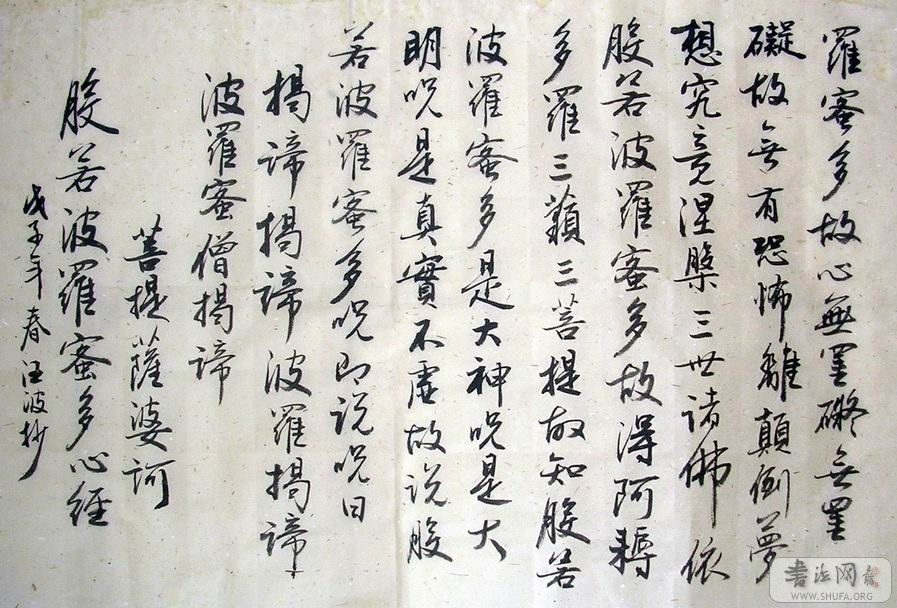 羅蜜多故心無罣礙無罣
礙故無有恐怖離顛倒夢
想究竟涅槃三世諸佛依
般若波羅蜜多故得阿耨
多羅三藐三菩提故知般若
波羅蜜多是大神呪是大
明呪是真實不虛故说般
若波羅蜜多呪即说呪曰
揭諦揭諦波羅揭諦
波羅蜜僧揭諦
菩提薩婆訶
般若波羅蜜多心経
戊子年春汪波抄
书法网
WWW.SHUFA.ORG